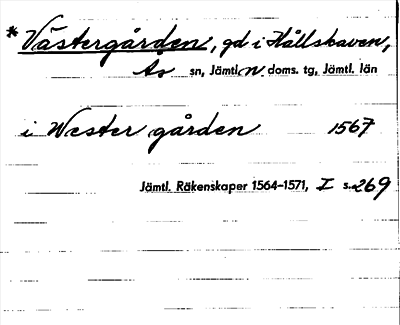 * Västergården, gd i Hållskaven,
Ås sn, Jämtl. N doms. tg, Jämtl. län
i Wester gården 1567
Jämtl. Räkenskaper 1564-1571, I s. 269